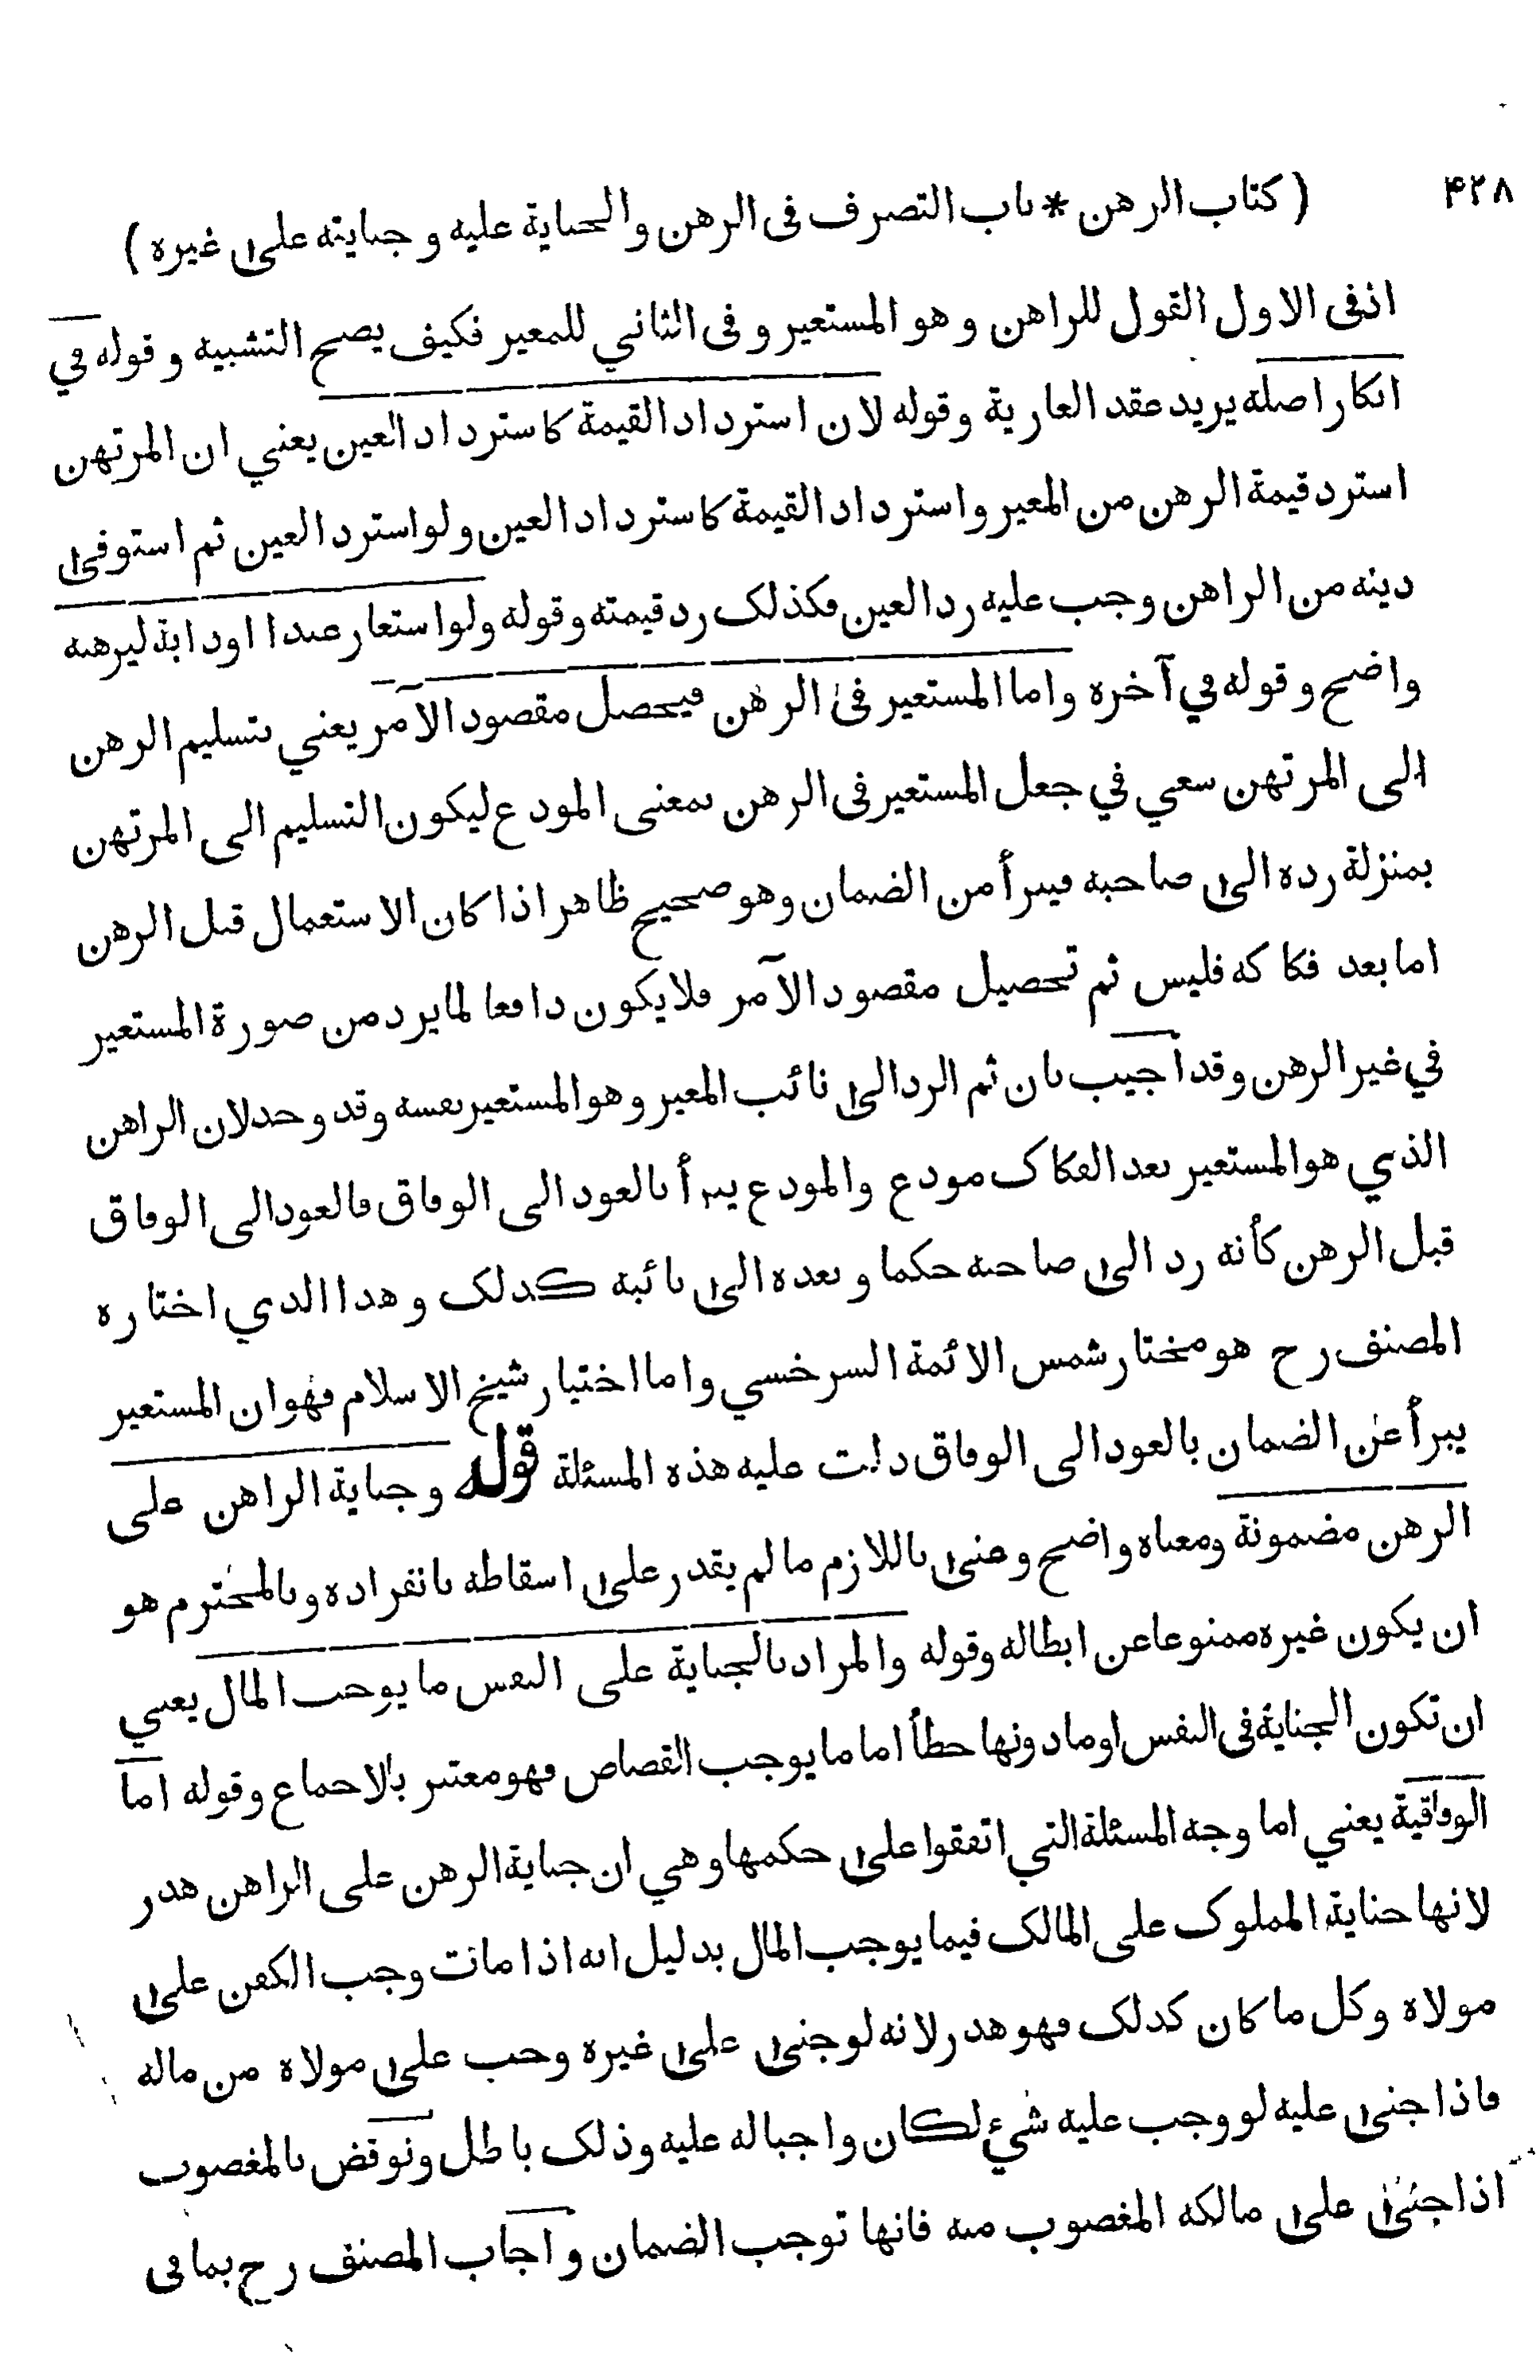 ۴۲۸ ( كتاب الرهن * باب التصرف فى الرهن والجناية عليه و جنايته على غيره )
اذفى الاول القول للراهن و هو المستعير و فى الثاني للمعير فكيف يصح التشبيه و قوله في
انكار اصله يريد عقد العارية وقوله لان استرداد القيمة كاسترداد العين يعني ان المرتهن
استرد قيمة الرهن من المعير واسترداد القيمة كاسترداد العين ولو استرد العين ثم استوفى
دينه من الراهن وجب عليه رد العين فكذلك رد قيمته وقوله ولو استعار عبدا او دابة ليرهنه
واضح و قوله في آخره واما المستعير فى الرهن فيحصل مقصود الآمر يعني بتسليم الرهن
الى المرتهن سعي في جعل المستعير فى الرهن بمعنى المودع ليكون التسليم الى المرتهن
بمنزلة رده الى صاحبه فيبرأ من الضمان وهو صحيح ظاهر اذا كان الاستعمال قبل الرهن
اما بعد فكاكه فليس ثم تحصيل مقصود الآمر فلا يكون دافعا لما يرد من صورة المستعير
في غير الرهن وقد أجيب بان ثم الرد الى نائب المعير و هو المستعير نفسه وقد وجد لان الراهن
الذي هو المستعير بعد الفكاك مودع والمودع يبرأ بالعود الى الوفاق فالعود الى الوفاق
قبل الرهن كأنه رد الى صاحبه حكما و بعده الى نائبه كذلك و هذا الذي اختاره
المصنف رح هو مختار شمس الائمة السرخسي واما اختيار شيخ الاسلام فهو ان المستعير
يبرأ عن الضمان بالعود الى الوفاق دلت عليه هذه المسئلة قوله و جناية الراهن على
الرهن مضمونة ومعناه واضح وعنى باللازم ما لم يقدر على اسقاطه بانفراده وبالمحترم هو
ان يكون غيره ممنوعا عن ابطاله وقوله والمراد بالجناية على النفس ما يوجب المال يعني
ان تكون الجناية فى النفس او ما دونها خطأ اما ما يوجب القصاص فهو معتبر بالاجماع وقوله اما
الوفاقية يعني اما وجه المسئلة التي اتفقوا على حكمها وهي ان جناية الرهن على الراهن هدر
لانها جناية المملوك على المالك فيما يوجب المال بدليل انه اذا مات وجب الكفن على
مولاه وكل ما كان كذلك فهو هدر لانه لو جنى على غيره وجب على مولاه من ماله
فاذا جنى عليه لو وجب عليه شيء لكان واجبا له عليه وذلك باطل ونوقض بالمغصوب
اذا جنى على مالكه المغصوب منه فانها توجب الضمان و اجاب المصنف رح بما في